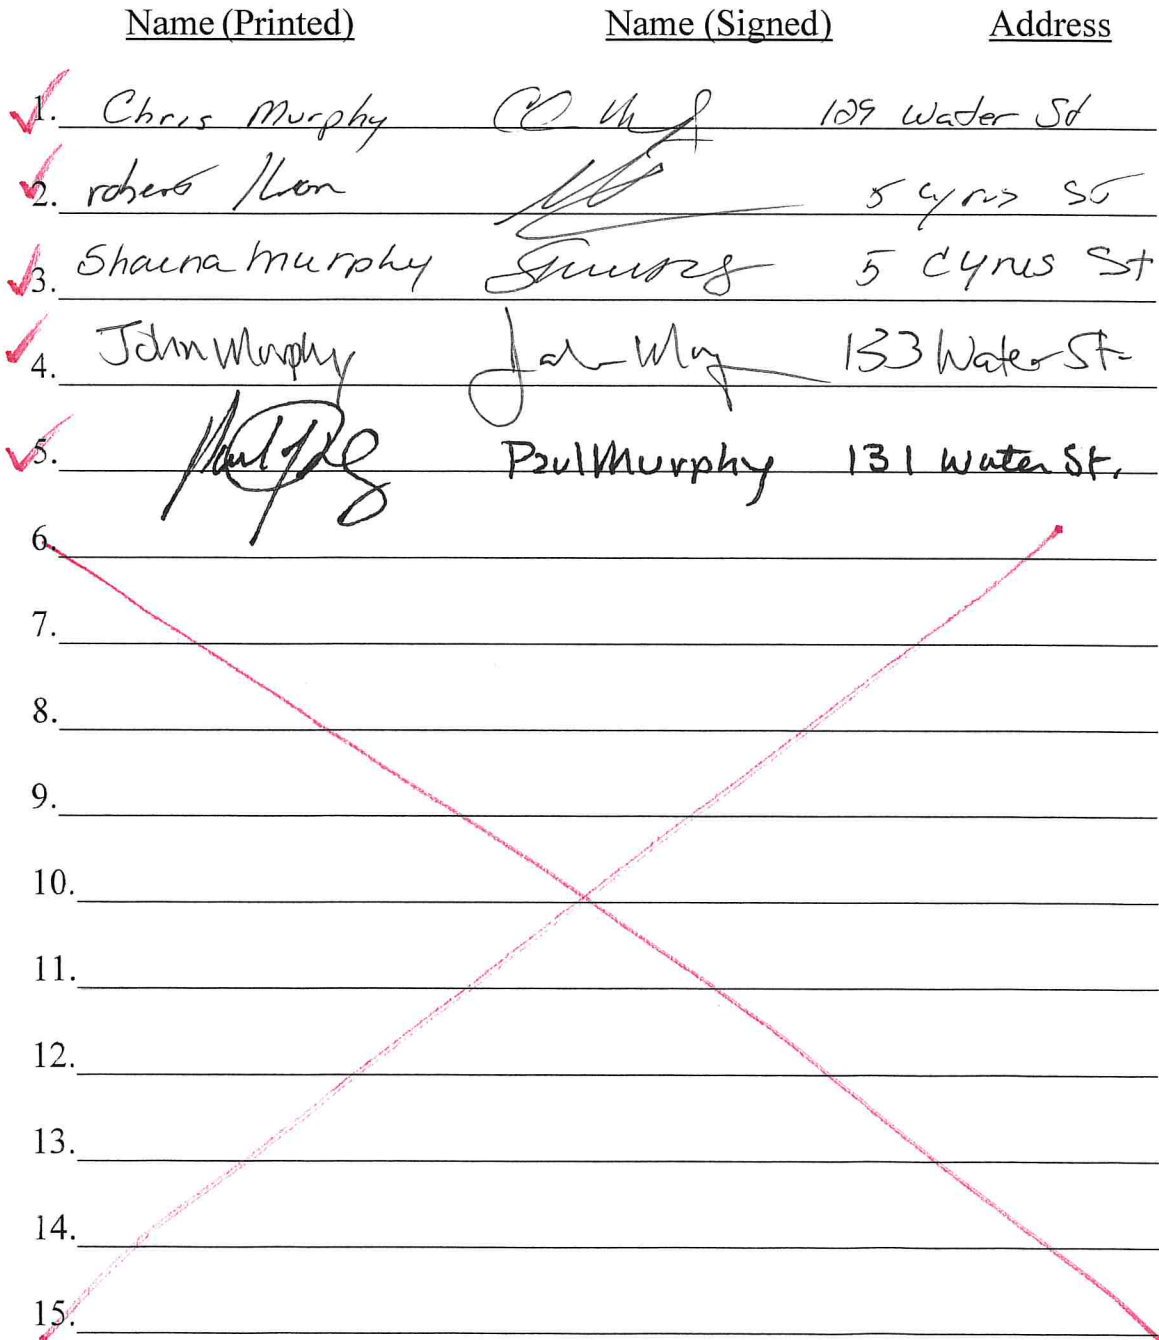 Name (Printed) Name (Signed) Address
1. Chris Murphy 129 Water St
2. robert 5 Cyrus St
3. Shauna Murphy 5 Cyrus St
4. John Murphy 133 Water St.
5. Paul Murphy 131 Water St.
6.
7.
8.
9.
10.
11.
12.
13.
14.
15.